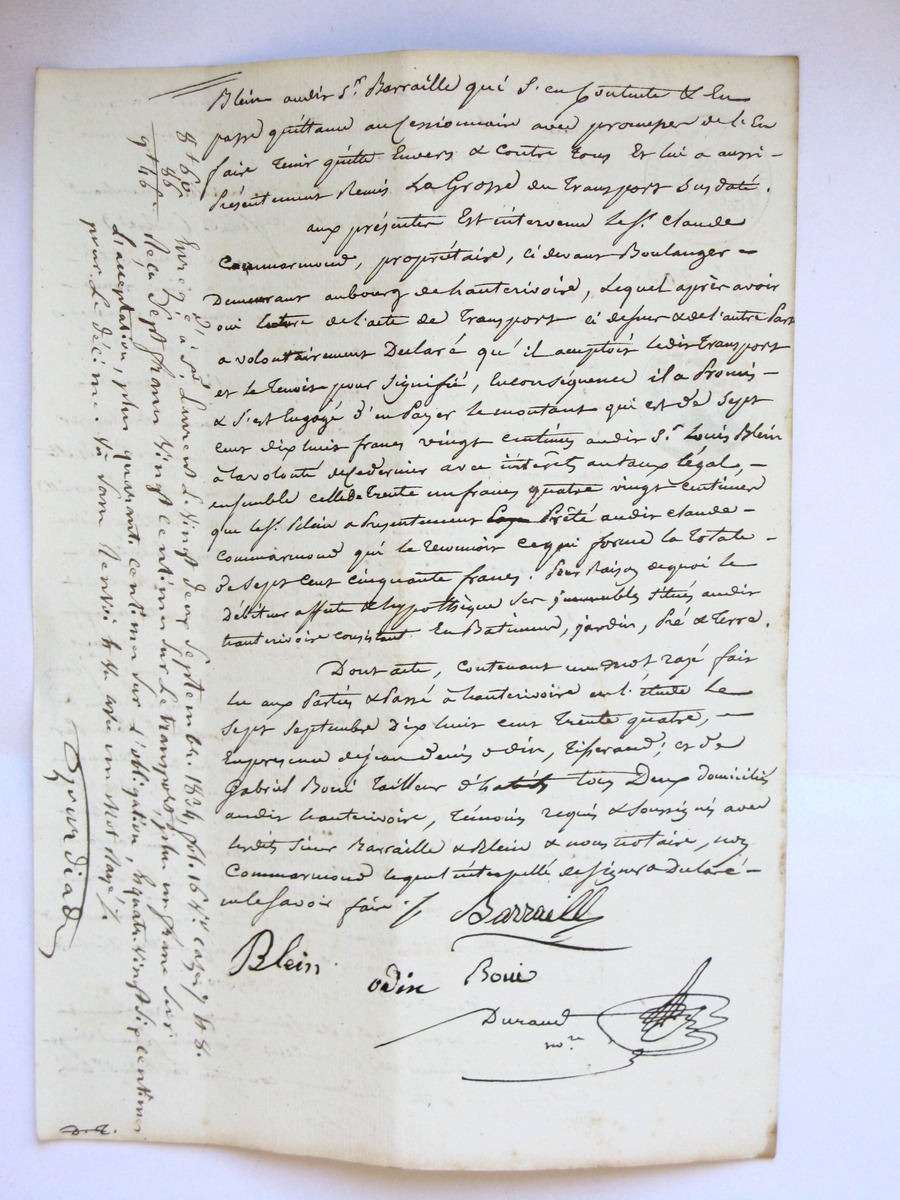 Blein audit Sr. Barraille qui s'en Contente & En
passe quittance au Cessionnaire avec promesse de l'En
faire tenir quitte Envers & contre tous Et lui a aussi-
Présentement Remis La Grosse du Transport susdaté.
aux présentes Est intervenu le Sr. Claude
Commarmond, propriétaire, ci devant Boulanger -
Demeurant au bourg de hauterivoire, Lequel après avoir
oui lecture de l'acte de Transport ci dessus & de l'autre Part
a volontairement Declaré qu'il acceptoit ledit Transport
et le Tenoit pour signifié, En conséquence il a Promis -
& s'est Engagé d'en Payer le montant qui est de Sept
cent dix huit francs vingt centimes audit Sr. Louis Blein
à la volonté de ce dernier avec intérêts au taux légal, -
ensemble celle de Trente un francs quatre vingt centimes
que le Sr. Blein a Présentement Prêté audit Claude -
Commarmond qui le reconnoit ce qui forme la Totale -
de Sept cent cinquante francs. Pour Raison de quoi le
Débiteur affecte & hypothèque ses immeubles situés audit
hauterivoire consistant En Batiment, jardin, Pré & Terre.
Dont acte, contenant un mot rayé fait
lu aux Parties & Passé à hauterivoire en l'étude Le
Sept Septembre Dix huit cent Trente quatre, -
En presence de jean denis odin, Tisserand; et de
Gabriel Boué Tailleur d'habits tous Deux domiciliés
audit hauterivoire, Témoins requis & Soussignés avec
lesdits Sieur Barraille & Blein & nous notaire, non
Commarmond lequel interpellé de signer a Déclaré -
ne le savoir faire ./.
Barraille
Blein
odin Boué
Durand
nre
8f 60c
86
9f 46c
Enregé à St. Laurent le vingt deux septembre 1834, fol. 16 vo. cases 7 & 8.
Reçu sept francs vingt centimes sur le transport, plus un franc sur
L'acceptation, plus quarante centimes sur l'obligation, & quatre vingt six centimes
pour Le décime. Vu sans Renvoi & avec un Mot Rayé ./.